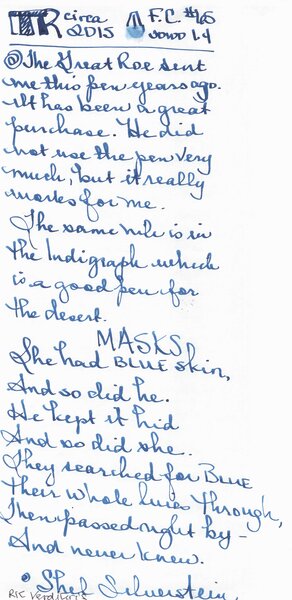 TR circa F.C. #65
2015 JoWo 1.4
@The Great Roe sent
me this pen years ago.
It has been a great
purchase. He did
not use the pen very
much, but it really
works for me.
The same nib is in
the Indigraph which
is a good pen for
the desert.
MASKS
She had BLUE skin,
And so did he.
He kept it hid
And so did she.
They searched for BLUE
Their whole lives through,
Then passed right by—
And never knew.
• Shel Silverstein